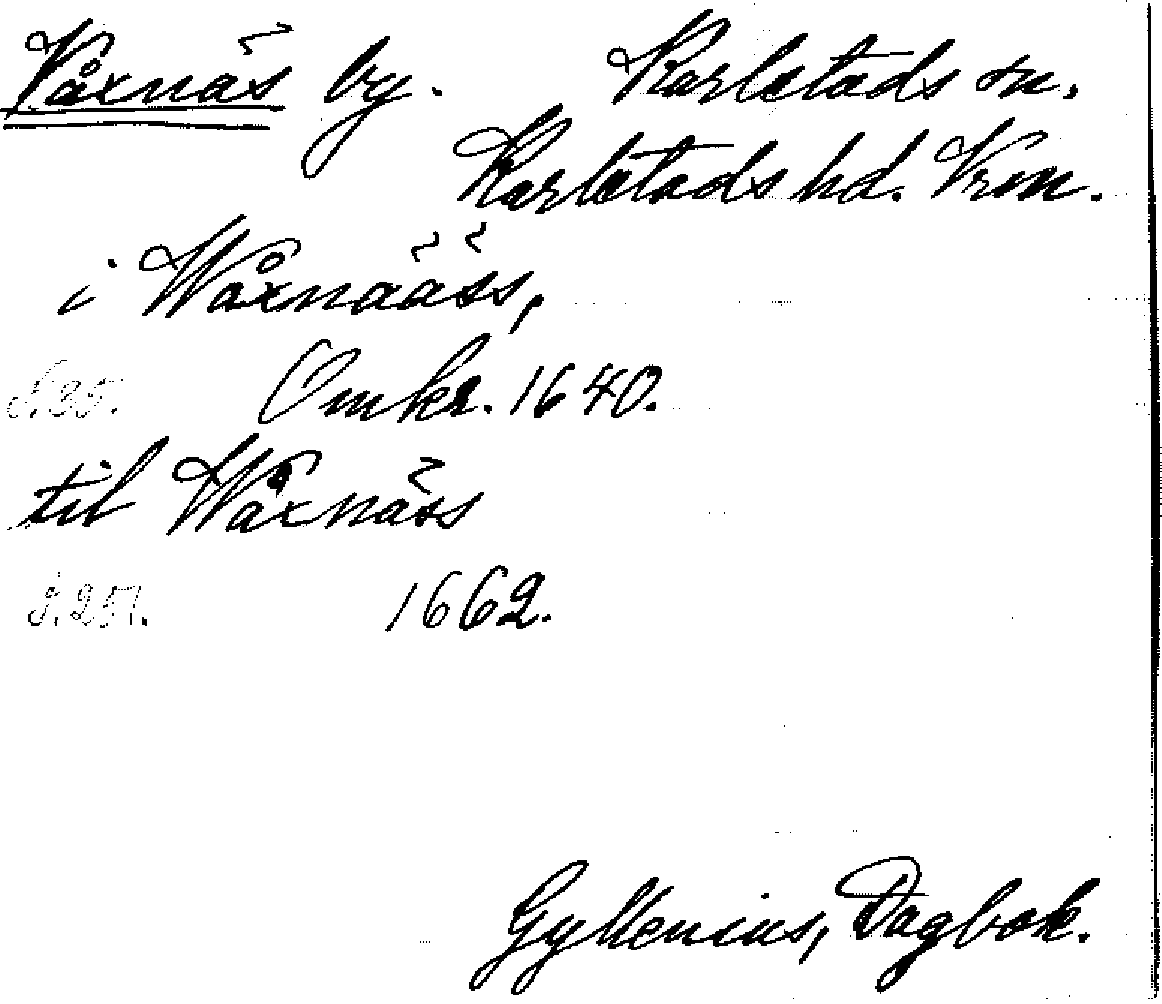 Våxnäs by. Karlstads sn.
Karlstads hd. Vrm.
i Wåxnääss,
S. 35. Omkr. 1640.
til Wåxnäss
S. 251. 1662.
Gyllenius, Dagbok.